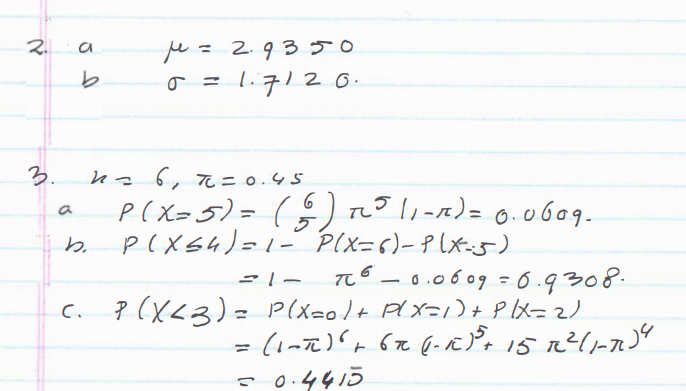 2. a μ = 2.9350
b σ = 1.7120.
3. n = 6, π = 0.45
a P(X=5) = (6 5) π^5 (1-π) = 0.0609.
b. P(X≤4) = 1 - P(X=6) - P(X=5)
= 1 - π^6 - 0.0609 = 0.9308.
c. P(X<3) = P(X=0) + P(X=1) + P(X=2)
= (1-π)^6 + 6π (1-π)^5 + 15 π^2 (1-π)^4
= 0.4415